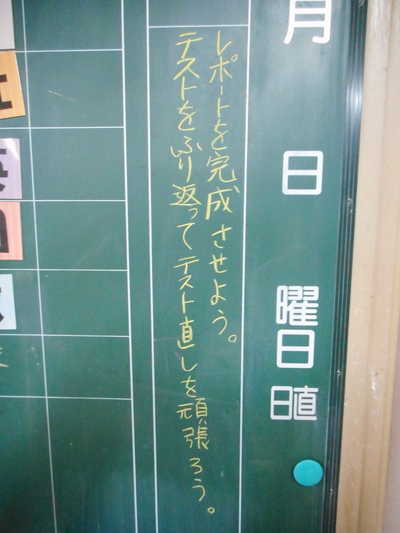 月
日
曜日
日直
レポートを完成させよう。
テストをふり返ってテスト直しを頑張ろう。